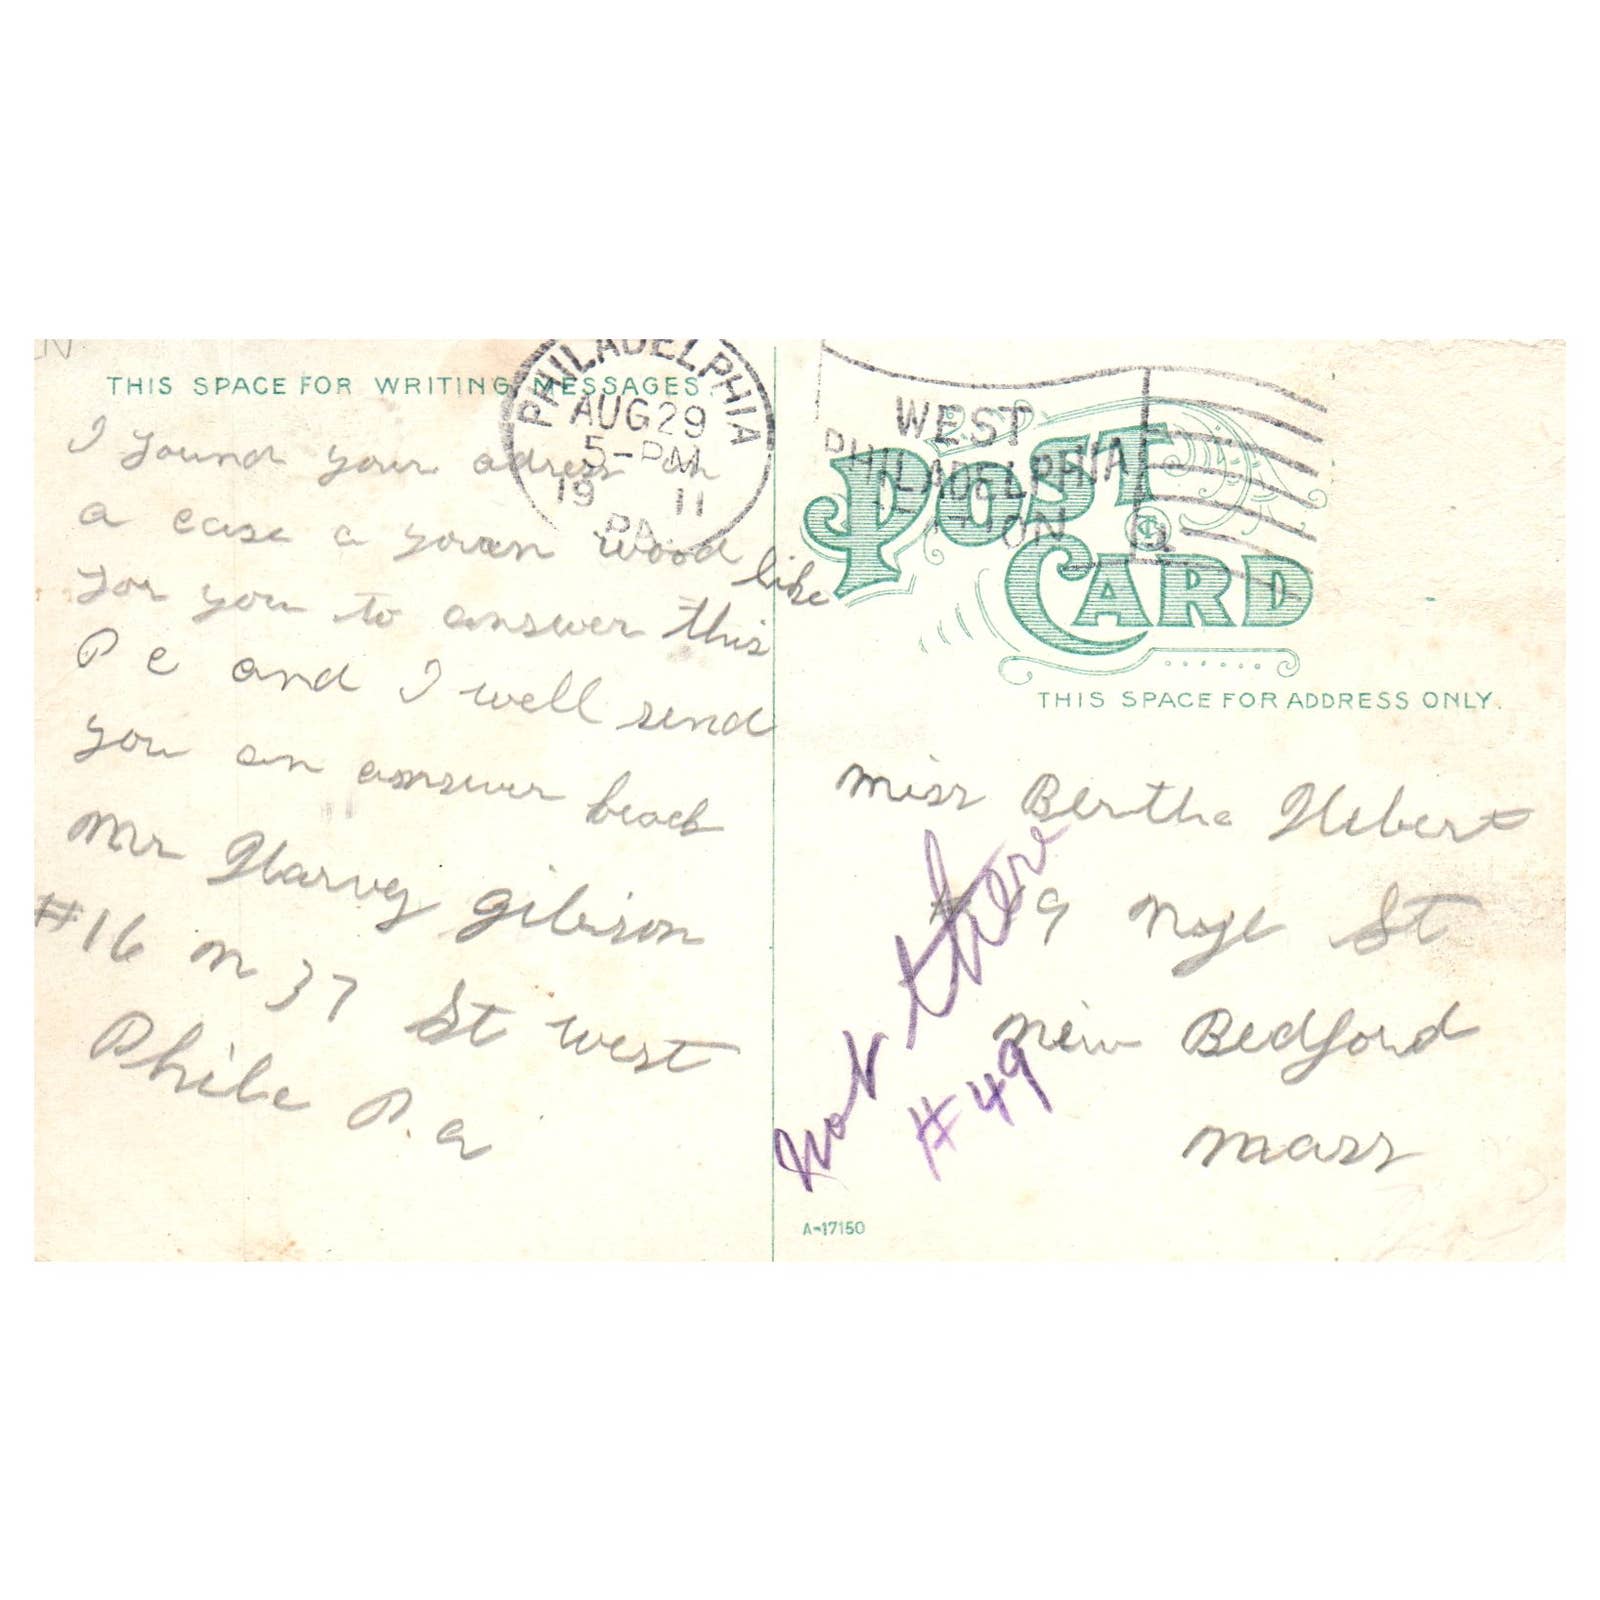 THIS SPACE FOR WRITING MESSAGES.
PHILADELPHIA
AUG 29
5-PM
19 11
PA.
I found your adress on
a case a yoven wood like
for you to answer this
P c and I well send
you an answer beack
Mr Harvey Gibison
#16 N 37 St west
Phila P.a
WEST
PHILADELPHIA
STATION
POST CARD
THIS SPACE FOR ADDRESS ONLY.
Miss Bertha Hebert
# 9 Nye St
New Bedford
Mass
Not there
#49
A-17150